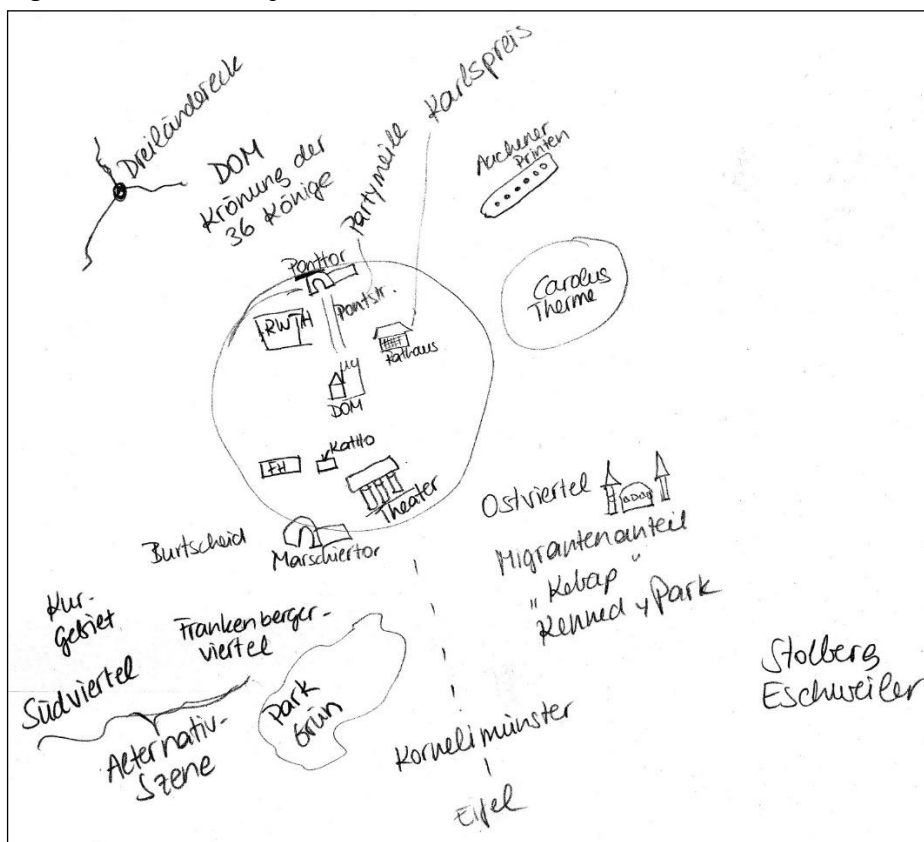 Dreiländereck
DOM
Krönung der
36 Könige
Partymeile
Karlspreis
Aachener
Printen
Ponttor
Pontstr.
RWTH
Rathaus
DOM
Carolus
Therme
FH
Theater
Ostviertel
Burtscheid
Marschiertor
Migrantenanteil
"Kebap"
Kennedy Park
Kur-
Gebiet
Frankenberger-
viertel
Südviertel
Alternativ-
Szene
Park
Grün
Kornelimünster
Eifel
Stolberg
Eschweiler